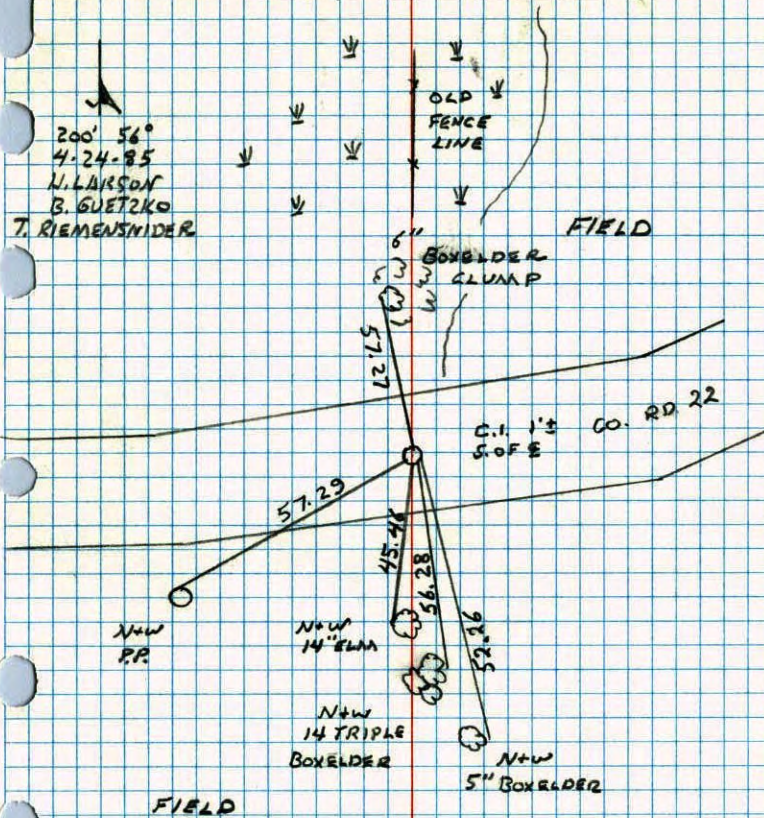 OLD
FENCE
LINE
200' 56°
4-24-85
W. LARSON
B. GUETZKO
T. RIEMENSNIDER
FIELD
6"
BOXELDER
CLUMP
57.27
C.I. 1'±
S. OF ℄
CO. RD. 22
57.29
45.46
56.28
52.26
N+W
P.P.
N+W
14" ELM
N+W
14 TRIPLE
BOXELDER
N+W
5" BOXELDER
FIELD